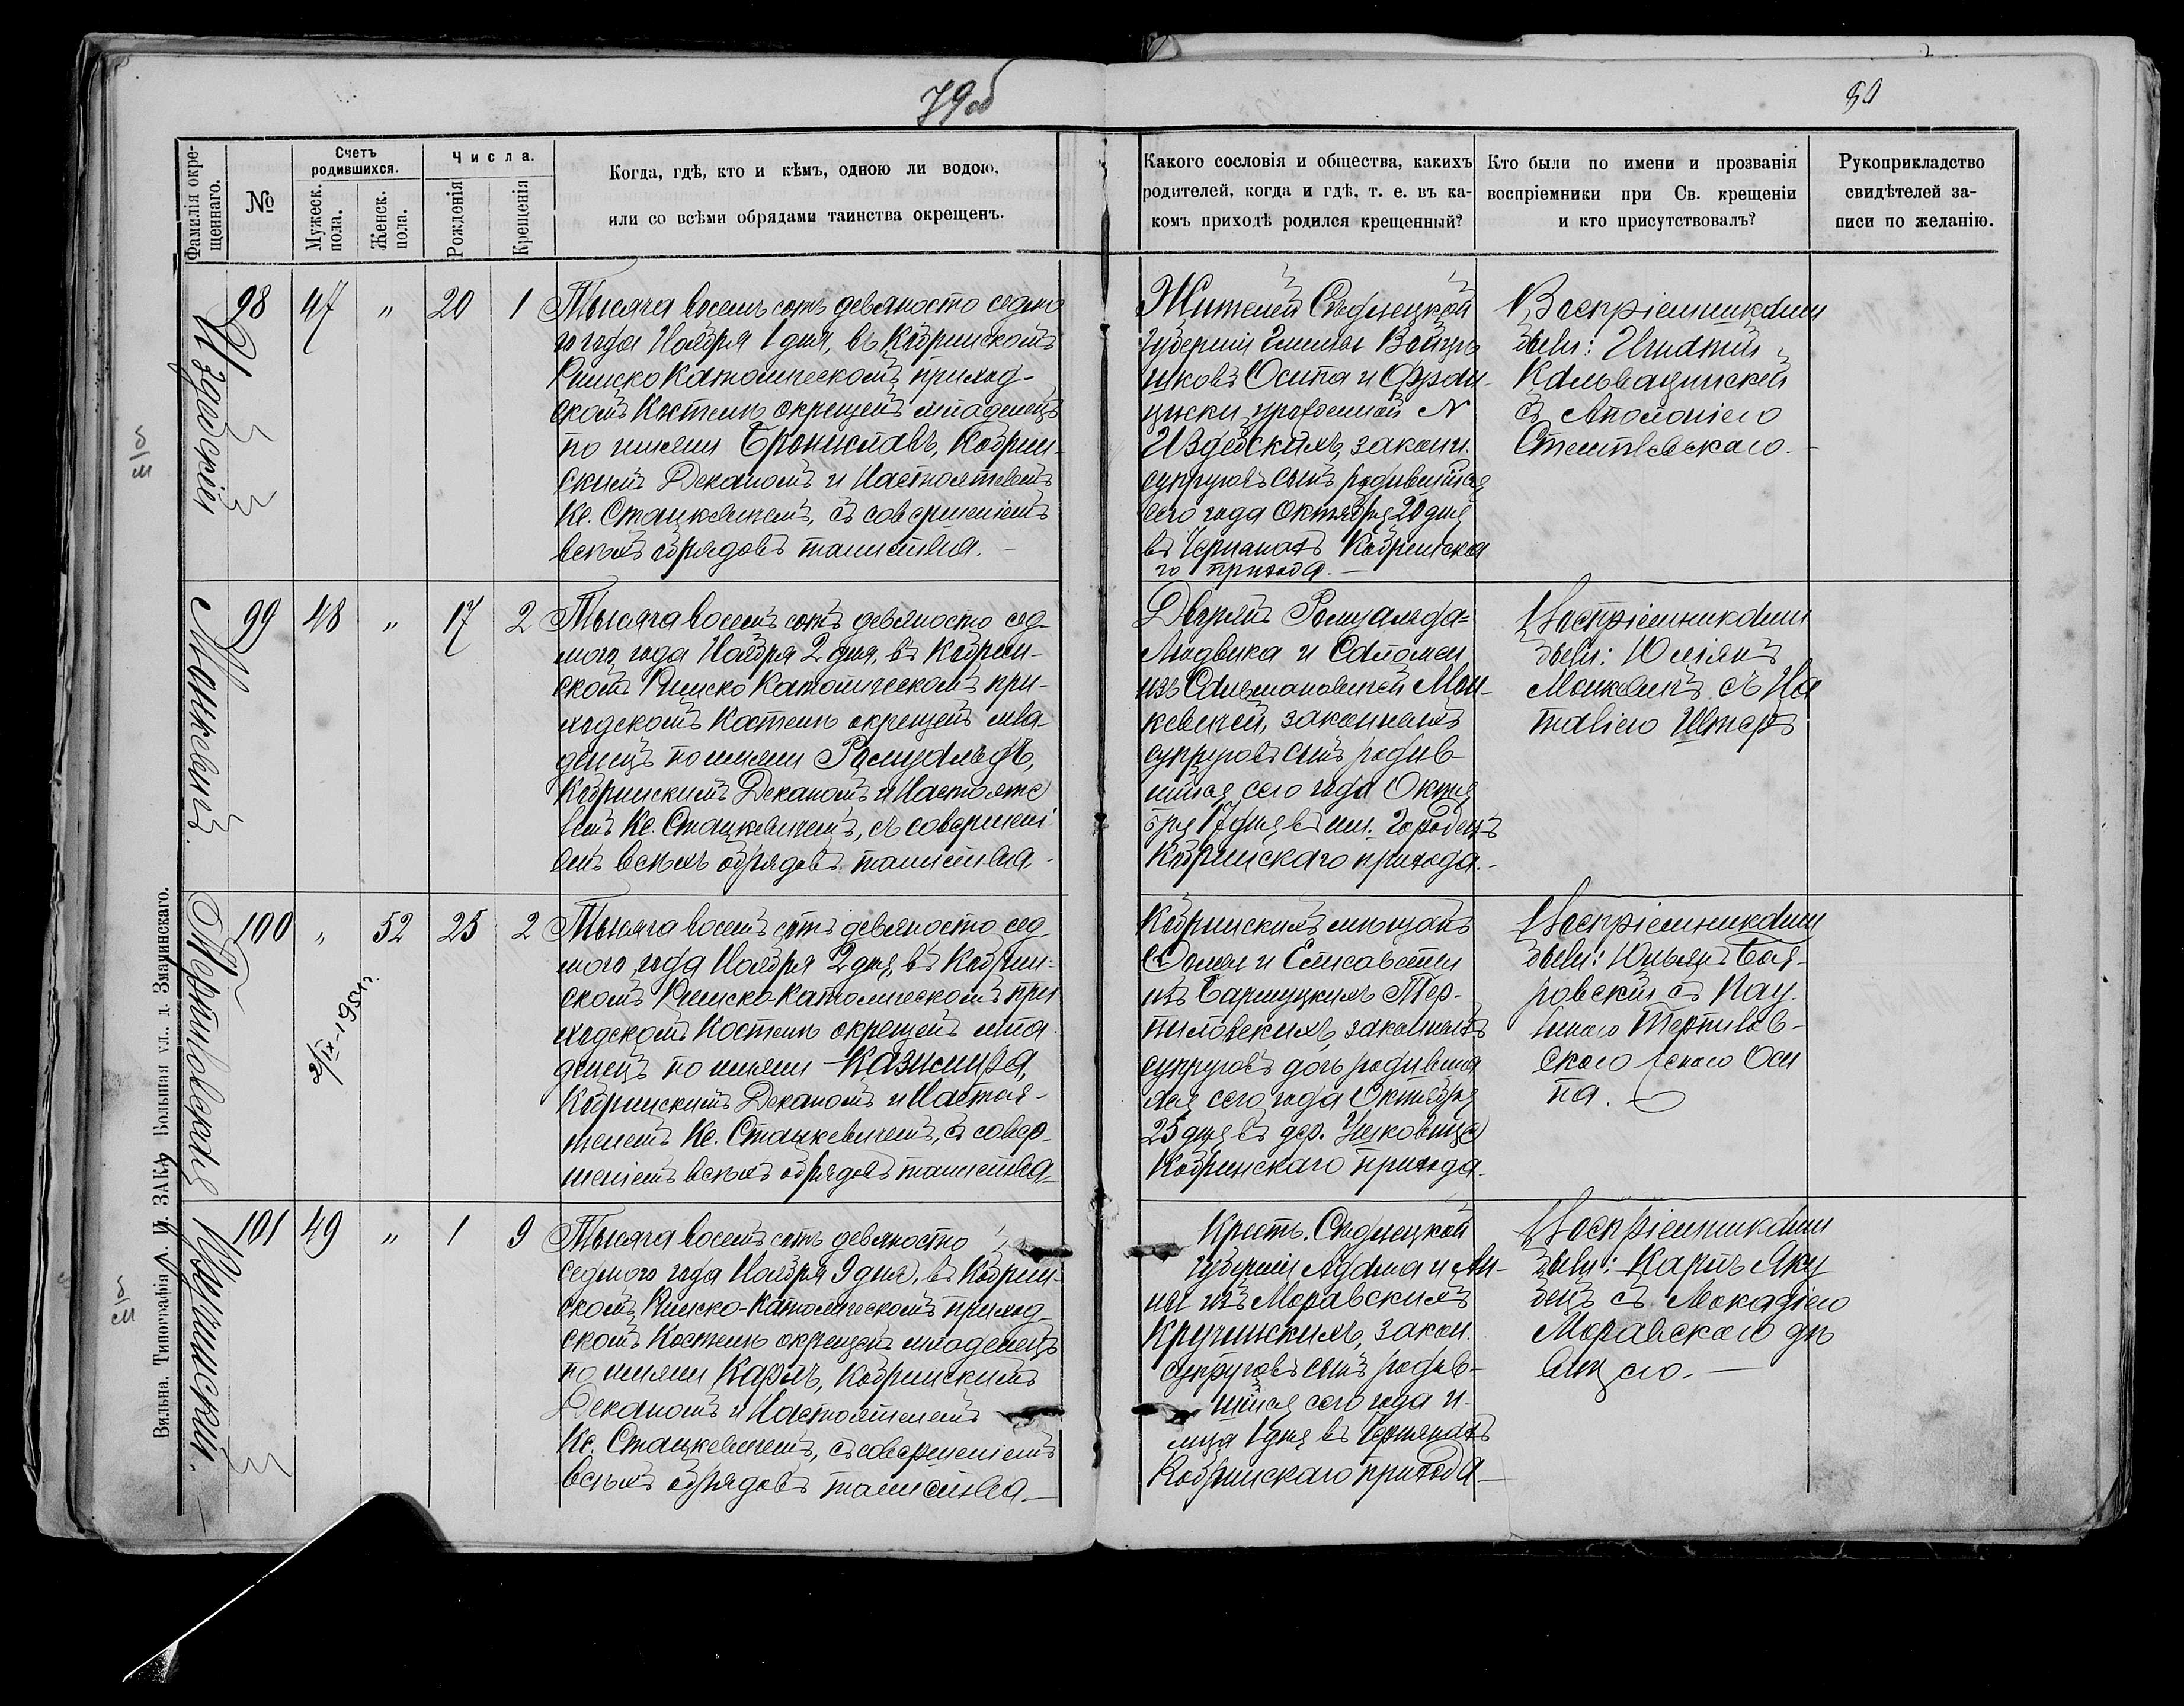 79об
80
Фамилія окрещеннаго.
№
Счетъ родившихся.
Мужеск. пола.
Женск. пола.
Числа.
Рожденія
Крещенія
Когда, гдѣ, кто и кѣмъ, одною ли водою,
или со всѣми обрядами таинства окрещенъ.
Какого сословія и общества, какихъ
родителей, когда и гдѣ, т. е. въ ка-
комъ приходѣ родился крещенный?
Кто были по имени и прозванія
воспріемники при Св. крещеніи
и кто присутствовалъ?
Рукоприкладство
свидѣтелей за-
писи по желанію.
Издебскій
98 47 " 20 1
Тысяча восемь сотъ девяносто седмо
го года Ноября 1 дня, въ Кобринскомъ
Римско Католическомъ приход-
скомъ Костелѣ окрещенъ младенецъ
по имени Брониславъ, Кобрин-
скимъ Деканомъ и Настоятелемъ
Кс. Стацкевичемъ, съ совершеніемъ
всѣхъ обрядовъ таинства.
Жителей Сѣдлецкой
Губерніи Гмины
Осипа и Фран-
циски урожденной N
Издебскихъ, законн.
супруговъ сынъ родившійся
сего года Октября 20 дня
въ Кобринска
го прихода.
Воспріемниками
были: Игнатій
Кальваринскій
съ Аполоніею
Монкевичъ
99 48 " 17 2
Тысяча восемь сотъ девяносто сед
мого года Ноября 2 дня, въ Кобрин-
скомъ Римско Католическомъ при-
ходскомъ Костелѣ окрещенъ мла-
денецъ по имени Ромуальдъ,
Кобринскимъ Деканомъ и Настояте
лемъ Кс. Стацкевичемъ, съ совершені-
емъ всѣхъ обрядовъ таинства.
Дворянъ Ромуальда-
Людвика и Саломеи
изъ Сильмановичей Мон-
кевичей, законныхъ
супруговъ сынъ родив
шійся сего года Октя
бря 17 дня въ им. Городецъ
Кобринскаго прихода.
Воспріемниками
были: Юліянъ
Монкевичъ съ На
таліею
Терпиловская
100 " 52 25 2
2/IX-1954г.
Тысяча восемь сотъ девяносто сед
мого года Ноября 2 дня, въ Кобрин-
скомъ Римско-Католическомъ при
ходскомъ Костелѣ окрещенъ мла
денецъ по имени Казимира,
Кобринскимъ Деканомъ и Настоя-
телемъ Кс. Стацкевичемъ, съ совер-
шеніемъ всѣхъ обрядовъ таинства
Кобринскихъ мѣщанъ
и Елисаветы
изъ Тер-
пиловскихъ, законныхъ
супруговъ дочь родивша
яся сего года Октября
25 дня въ дер.
Кобринскаго прихода.
Воспріемниками
были: Юльянъ
съ Пау
линою Терпилов-
скою женою Оси
па.
Кручинскій.
101 49 " 1 9
Тысяча восемь сотъ девяносто
седмого года Ноября 9 дня, въ Кобрин-
скомъ Римско-Католическомъ приход
скомъ Костелѣ окрещенъ младенецъ
по имени Карлъ, Кобринскимъ
Деканомъ и Настоятелемъ
Кс. Стацкевичемъ, съ совершеніемъ
всѣхъ обрядовъ таинства
Крест. Сѣдлецкой
Губерніи Адама и Ан-
ны изъ Моравскихъ
Кручинскихъ, закон.
супруговъ сынъ родив-
шійся сего года и
м-ца 1 дня въ
Кобринскаго прихода
Воспріемниками
были: Карлъ Яку
бецъ съ Леокадіею
Моравскою дѣ
вицею.
Вильна. Типографія А. И. ЗАКЪ Большая ул.. д. Змачинскаго.